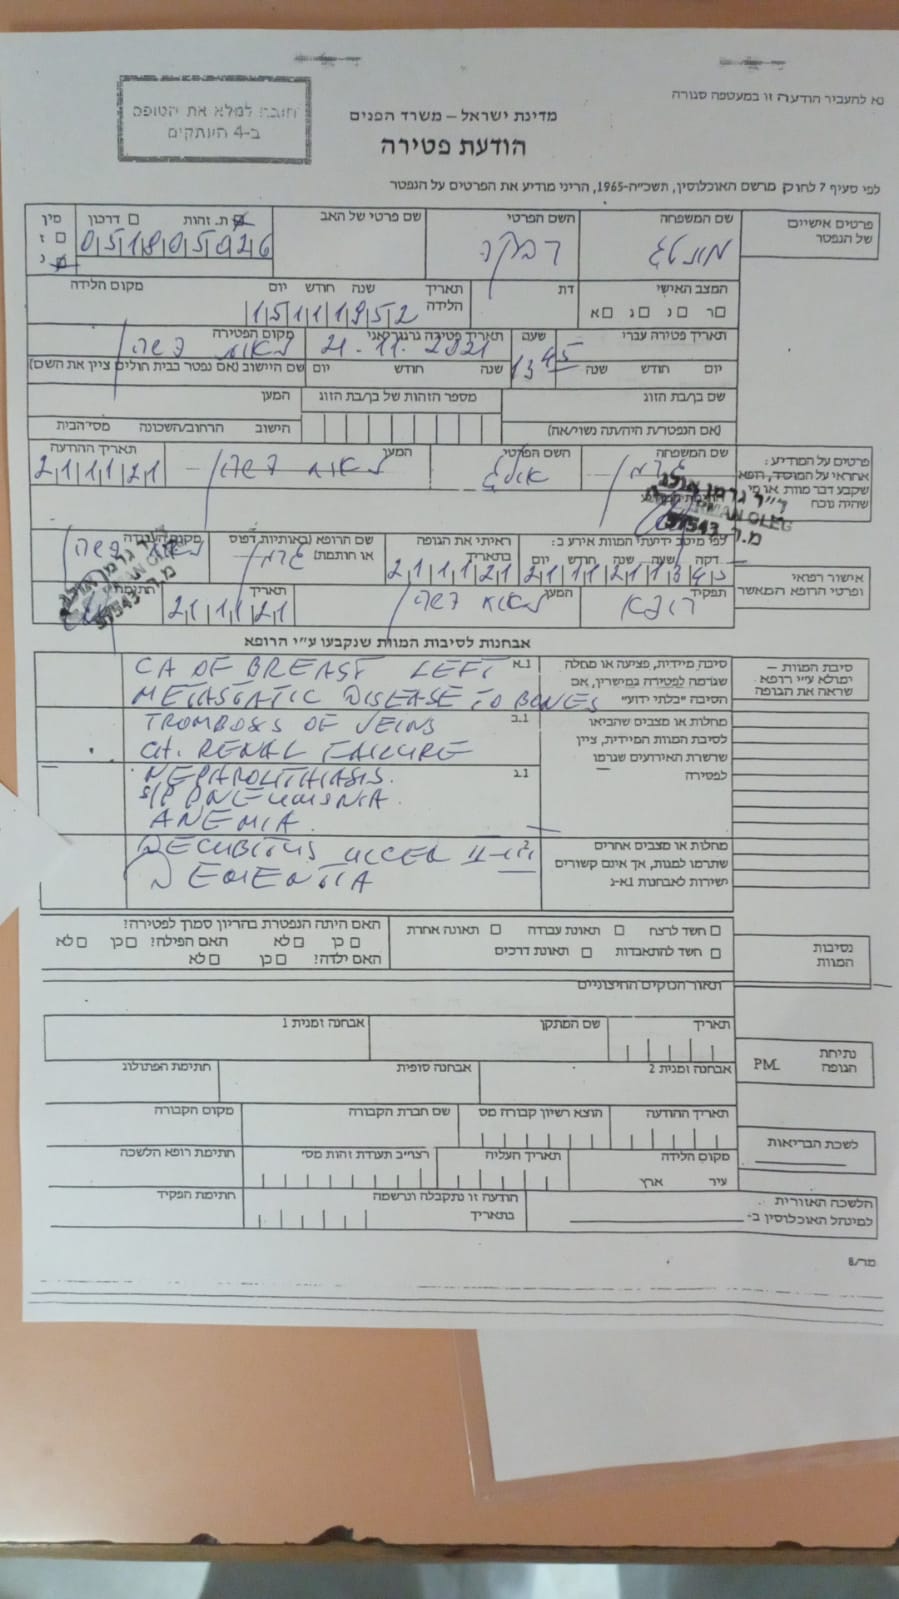 נא להעביר הודעה זו במעטפה סגורה
חובה למלא את הטופס
ב-4 העתקים
מדינת ישראל – משרד הפנים
הודעת פטירה
לפי סעיף 7 לחוק מרשם האוכלוסין, תשכ״ה-1965, הריני מודיע את הפרטים על הנפטר
פרטים אישיים של הנפטר
שם המשפחה השם הפרטי שם פרטי של האב ת. זהות דרכון מין
רבקה 051805926 ז נ
המצב האישי דת תאריך הלידה יום חודש שנה מקום הלידה
ר נ ג א 15111952
תאריך פטירה עברי שעה תאריך פטירה גרגוריאני מקום הפטירה
13 45 21.11.2021
יום חודש שנה יום חודש שנה שם היישוב (אם נפטר בבית חולים ציין את השם)
שם בן/בת הזוג מספר הזהות של בן/בת הזוג המען
(אם הנפטר/ת היה/תה נשוי/אה) היישוב הרחוב/השכונה מס׳ הבית
פרטים על המודיע:
אחראי על המוסד, רופא
שקבע דבר מוות או מי
שהיה נוכח
שם המשפחה השם הפרטי המען תאריך ההודעה
גרמן אולג 211121
ד״ר גרמן אולג
GERMAN OLEG
מ.ר. 57543
אישור רפואי
ופרטי הרופא המאשר
לפי מיטב ידיעתי המוות אירע ב: ראיתי את הגופה בתאריך שם הרופא (באותיות דפוס או חותמת) מקום העבודה
דקה שעה שנה חודש יום
2111211345 211121 גרמן
תפקיד המען תאריך חתימה
רופא 211121
ד״ר גרמן אולג
GERMAN OLEG
מ.ר. 57543
אבחנות לסיבות המוות שנקבעו ע״י הרופא
סיבת המוות –
ימולא ע״י רופא
שראה את הגופה
סיבה מיידית, פציעה או מחלה
שגרמה לפטירה במישרין, אם
הסיבה ״בלתי ידוע״
1.א CA OF BREAST LEFT
METASTATIC DISEASE TO BONES
מחלות או מצבים שהביאו
לסיבת המוות המיידית, ציין
שרשרת האירועים שגרמו
לפטירה
1.ב TROMBOSIS OF VEINS
CH. RENAL FAILURE
1.ג NEPHROLITHIASIS.
S/P PNEUMONIA
ANEMIA
מחלות או מצבים אחרים
שתרמו למוות, אך אינם קשורים
ישירות לאבחנות 1א-ג
2 DECUBITUS ULCER II-III
DEMENTIA
נסיבות
המוות
חשד לרצח תאונת עבודה תאונה אחרת
חשד להתאבדות תאונת דרכים
האם היתה הנפטרת בהריון סמוך לפטירה?
כן לא האם הפילה? כן לא
האם ילדה? כן לא
תאור הנזקים החיצוניים
נתיחת
הגופה PM
תאריך שם המתקן אבחנה זמנית 1
אבחנה זמנית 2 אבחנה סופית חתימת הפתולוג
לשכת הבריאות
תאריך ההודעה הוצא רשיון קבורה מס שם חברת הקבורה מקום הקבורה
מקום הלידה תאריך העליה רצו״ב תעודת זהות מס׳ חתימת רופא הלשכה
עיר ארץ
הלשכה האזורית
למינהל האוכלוסין ב-
הודעה זו נתקבלה ונרשמה
בתאריך
חתימת הפקיד
מר/8